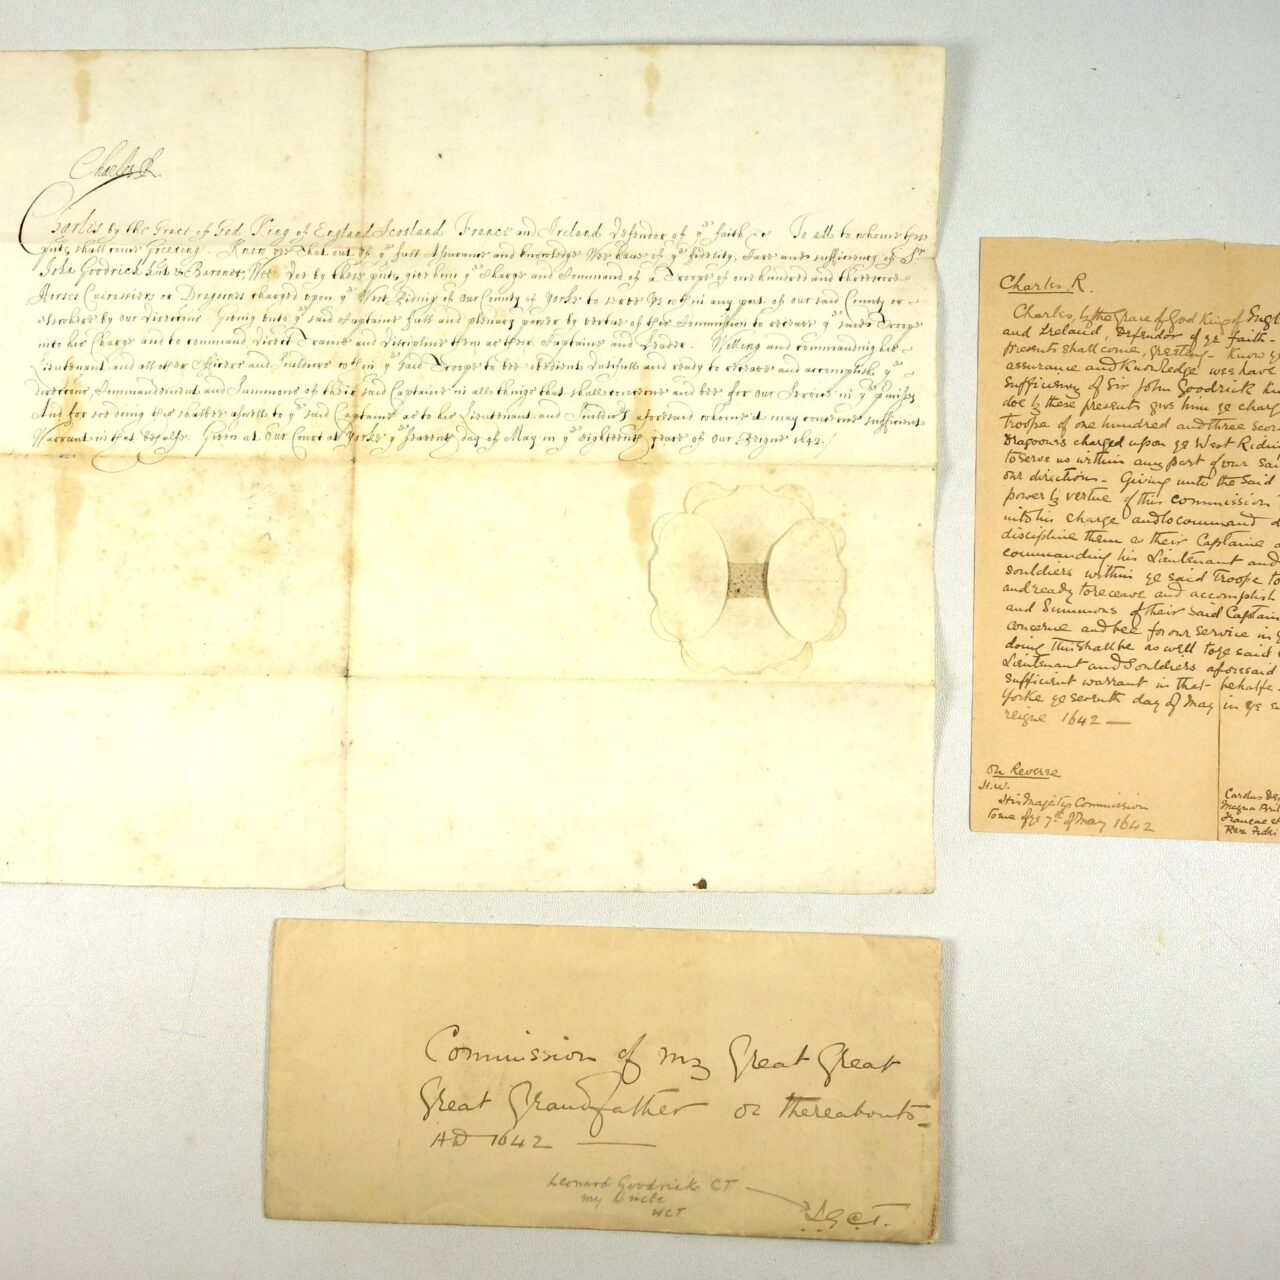 Charles R.
Charles by the Grace of God King of England Scotland France and Ireland Defendor of yᵉ faith &c. To all to whome thes
pnts shall come Greeting. Know yee That out of yᵉ full Assurance and knowledge Wee have of yᵉ fidelity, Care and sufficiency of Sʳ
John Goodrick Knt & Baronet, Wee Doe by these pnts, give him yᵉ Charge and Command of a Troope of one hundred and threescore
Horses Cuirassiers or Dragoones charged upon yᵉ West Riding of our County of Yorke to serve Us wᵗʰin any part of our said County or
elswhere by our Direccons. Giving unto yᵉ said Captaine full and plenary power by vertue of this Commission to receave yᵉ said Troope
into his Charge and to command Direct Traine and Discipline them as their Captaine and Leader. Willing and commanding his
Lieutenant and all other Officers and Souldiers wᵗʰin yᵉ said Troope to bee obedient Dutifull and ready to receave and accomplish yᵉ
direccons, Commandement and Summons of their said Captaine in all things that shall concerne and bee for our Service in yᵉ pmisses
And for soe doing this shalbee aswell to yᵉ said Captaine as to his Lieutenant and Souldiers aforesaid whome it may concerne sufficient
Warrant in that behalfe. Given at Our Court at Yorke yᵉ seaventh day of May in yᵉ eighteenth yeare of Our Reigne 1642./
Charles R.
Charles, by the Grace of God King of Engl
and Ireland, Defendor of ye faith -
presents shall come, greeting - Know ye
assurance and Knowledge wee have
sufficiency of Sir John Goodrick Kn
doe by these presents give him ye charg
Troope of one hundred and three scor
Dragoons charged upon ye West Ridin
to serve us within any part of our sai
our directions - Giving unto the said
power by vertue of this commission
into his charge and to command d
discipline them as their Captaine
commanding his Lieutenant and
souldiers within ye said troope to
and ready to receave and accomplish
and Summons of their said Captain
concerne and bee for our service in y
doing this shall be as well to ye said
Lieutenant and Souldiers aforesaid
sufficient warrant in that behalfe -
Yorke ye seventh day of May in ye
reigne 1642 —
On Reverse
H.W.
His Majestys Commission
to me of ye 7th of May 1642
Carolus De
Magna Brit
Franciae et
Rex Fidei
Commission of my Great Great
Great Grandfather or thereabouts -
AD 1642 —
Leonard Goodricke CT
my Uncle
WCT
L.G.C.T.